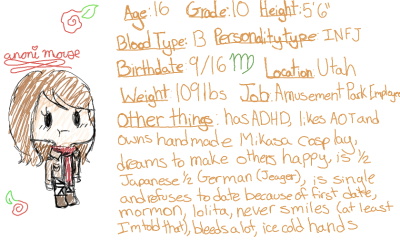 Age: 16 Grade: 10 Height: 5'6"
anoni mouse
Blood Type: B Personality type INFJ
Birthdate 9/16 ♍ Location Utah
Weight 109 lbs Job: Amusement Park Employee
Other things: has ADHD, likes AOT and
owns handmade Mikasa cosplay,
dreams to make others happy, is ½
Japanese ½ German (Jeager), is single
and refuses to date because of first date,
mormon, lolita, never smiles (at least
I'm told that), bleeds a lot, ice cold hands